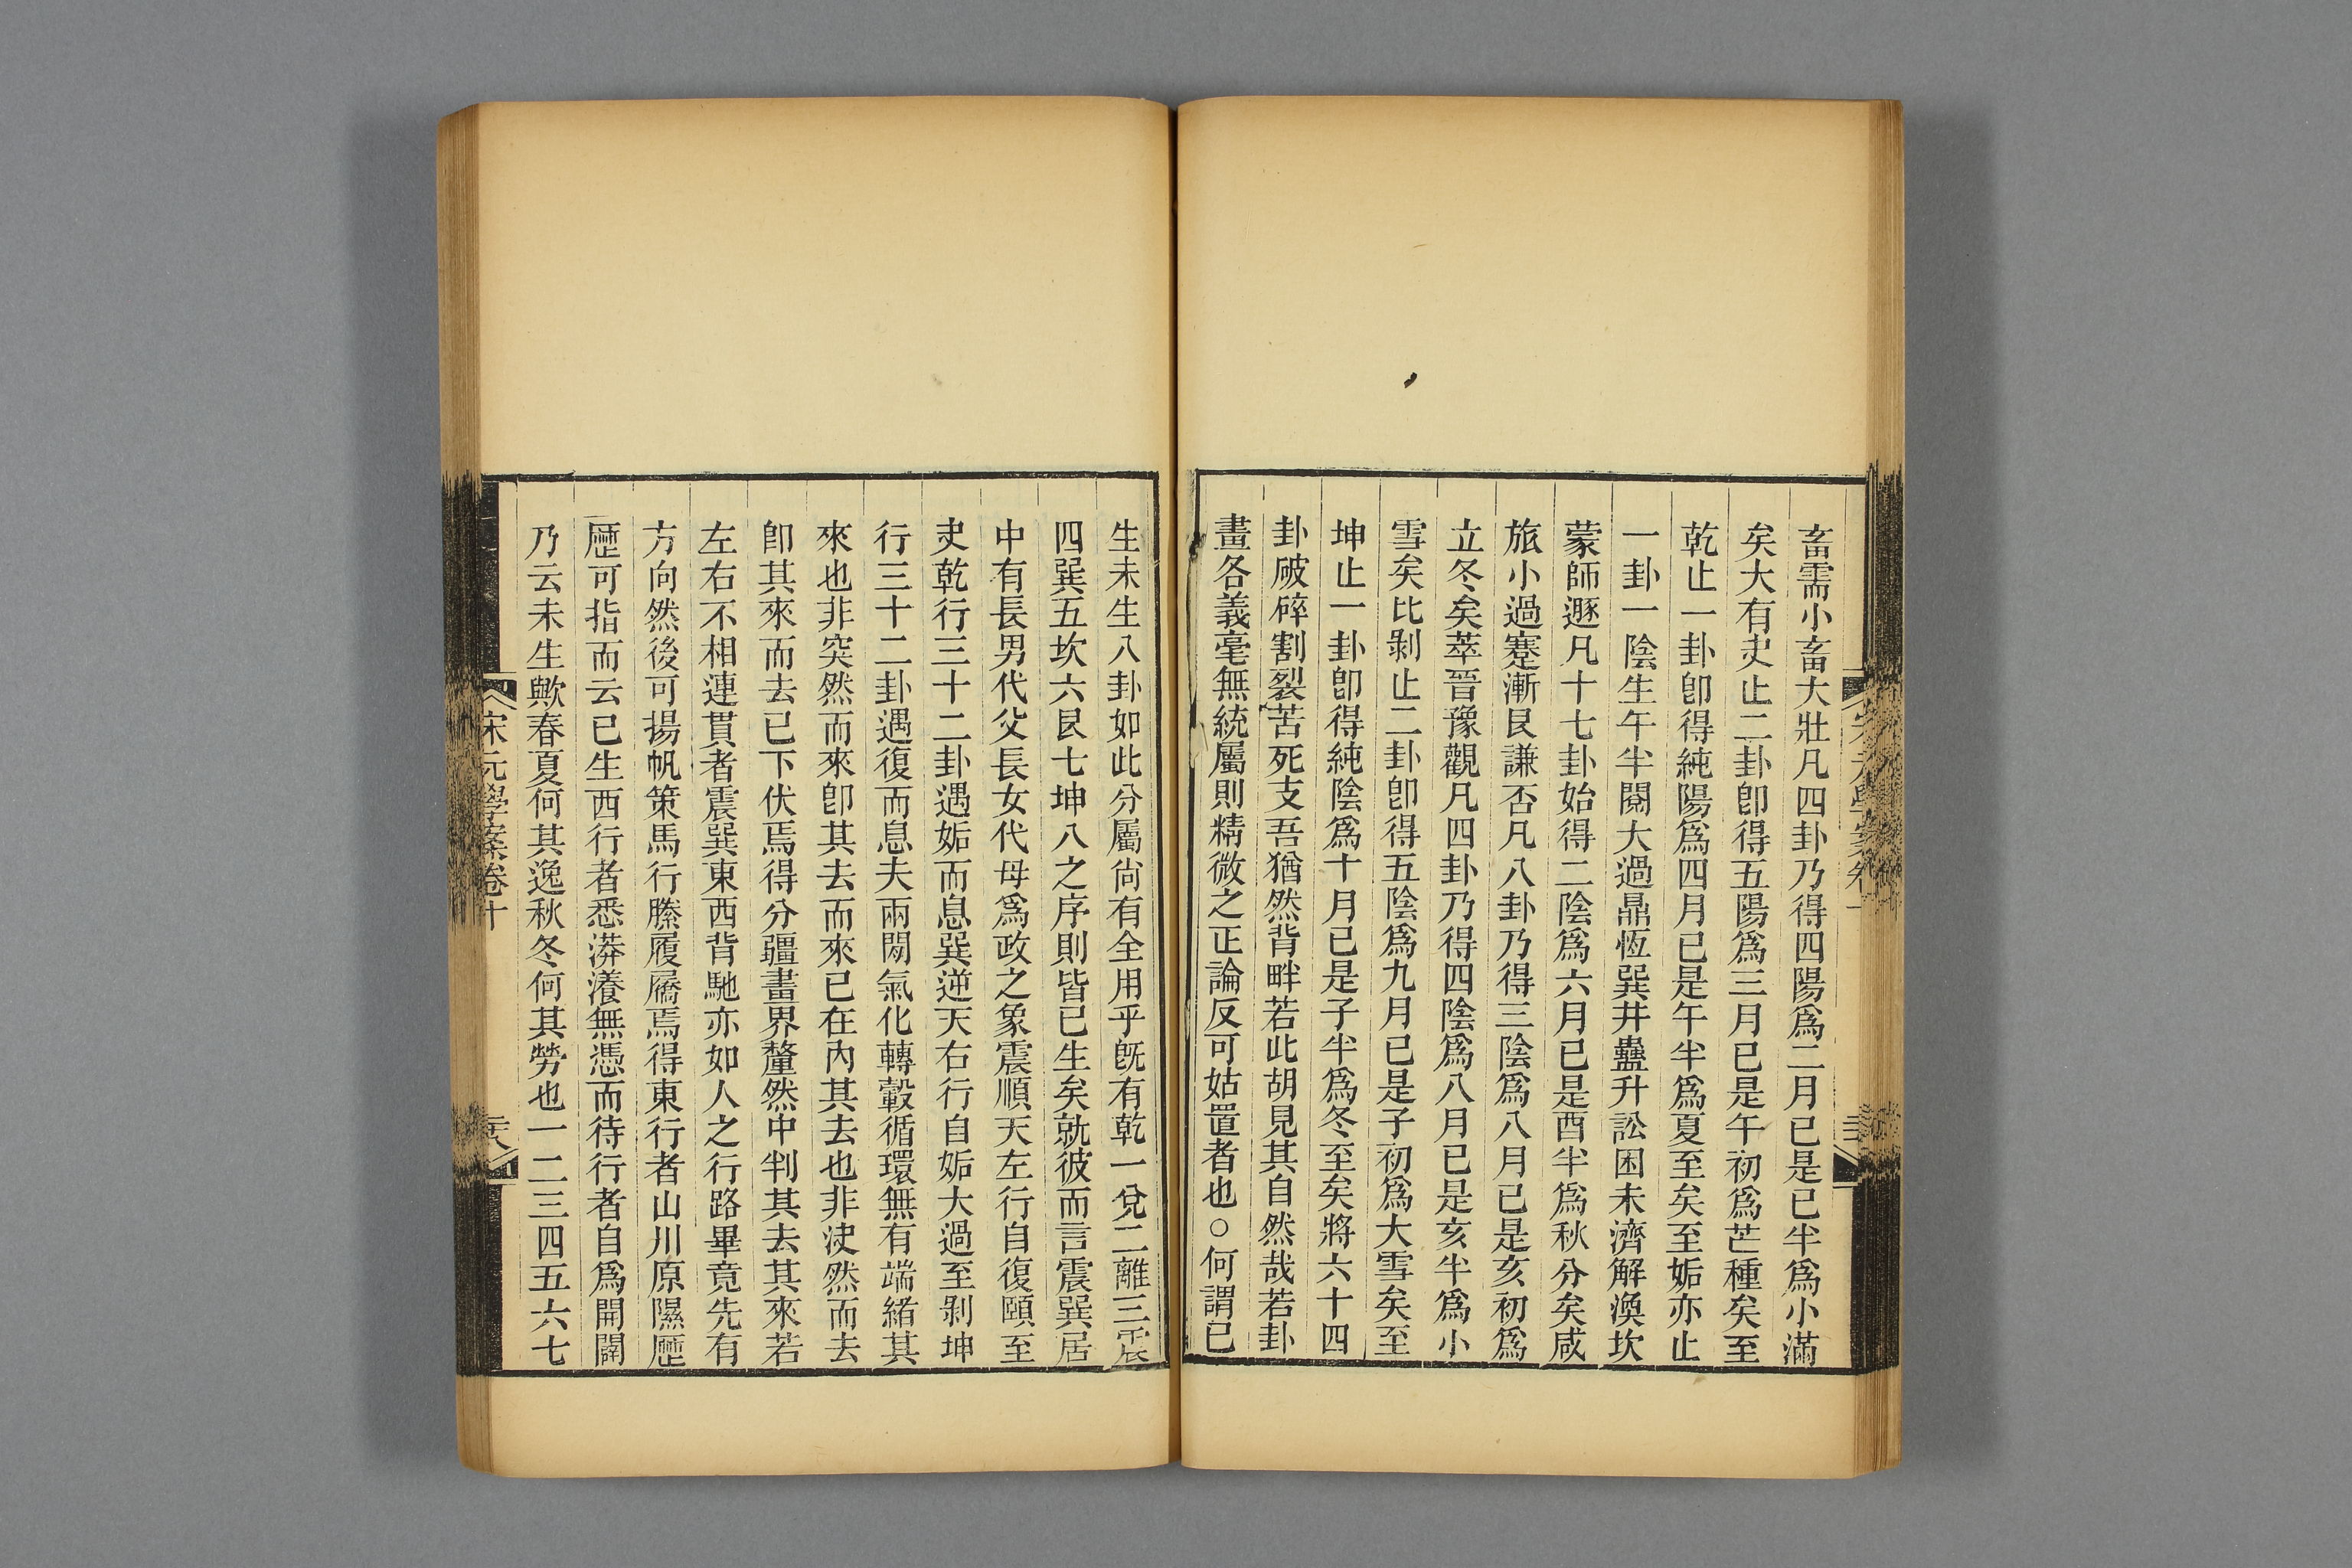 畜需小畜大壯凡四卦乃得四陽爲二月已是巳半爲小滿
矣大有夬止二卦卽得五陽爲三月已是午初爲芒種矣至
乾止一卦卽得純陽爲四月已是午半爲夏至矣至姤亦止
一卦一陰生午半閱大過鼎恆巽井蠱升訟困未濟解渙坎
蒙師遯凡十七卦始得二陰爲六月已是酉半爲秋分矣咸
旅小過蹇漸艮謙否凡八卦乃得三陰爲八月已是亥初爲
立冬矣萃晉豫觀凡四卦乃得四陰爲八月已是亥半爲小
雪矣比剝止二卦卽得五陰爲九月已是子初爲大雪矣至
坤止一卦卽得純陰爲十月已是子半爲冬至矣將六十四
卦破碎割裂苦死支吾猶然背畔若此胡見其自然哉若卦
畫各義毫無統屬則精微之正論反可姑置者也○何謂已
生未生八卦如此分屬尙有全用乎旣有乾一兌二離三震
四巽五坎六艮七坤八之序則皆已生矣就彼而言震巽居
中有長男代父長女代母爲政之象震順天左行自復頤至
夬乾行三十二卦遇姤而息巽逆天右行自姤大過至剝坤
行三十二卦遇復而息夫兩閒氣化轉轂循環無有端緒其
來也非突然而來卽其去而來已在內其去也非決然而去
卽其來而去已下伏焉得分疆畫界釐然中判其去其來若
左右不相連貫者震巽東西背馳亦如人之行路畢竟先有
方向然後可揚帆策馬行縢履屩焉得東行者山川原隰歷
歷可指而云已生西行者悉漭瀁無憑而待行者自爲開闢
乃云未生歟春夏何其逸秋冬何其勞也一二三四五六七
宋元學案卷十